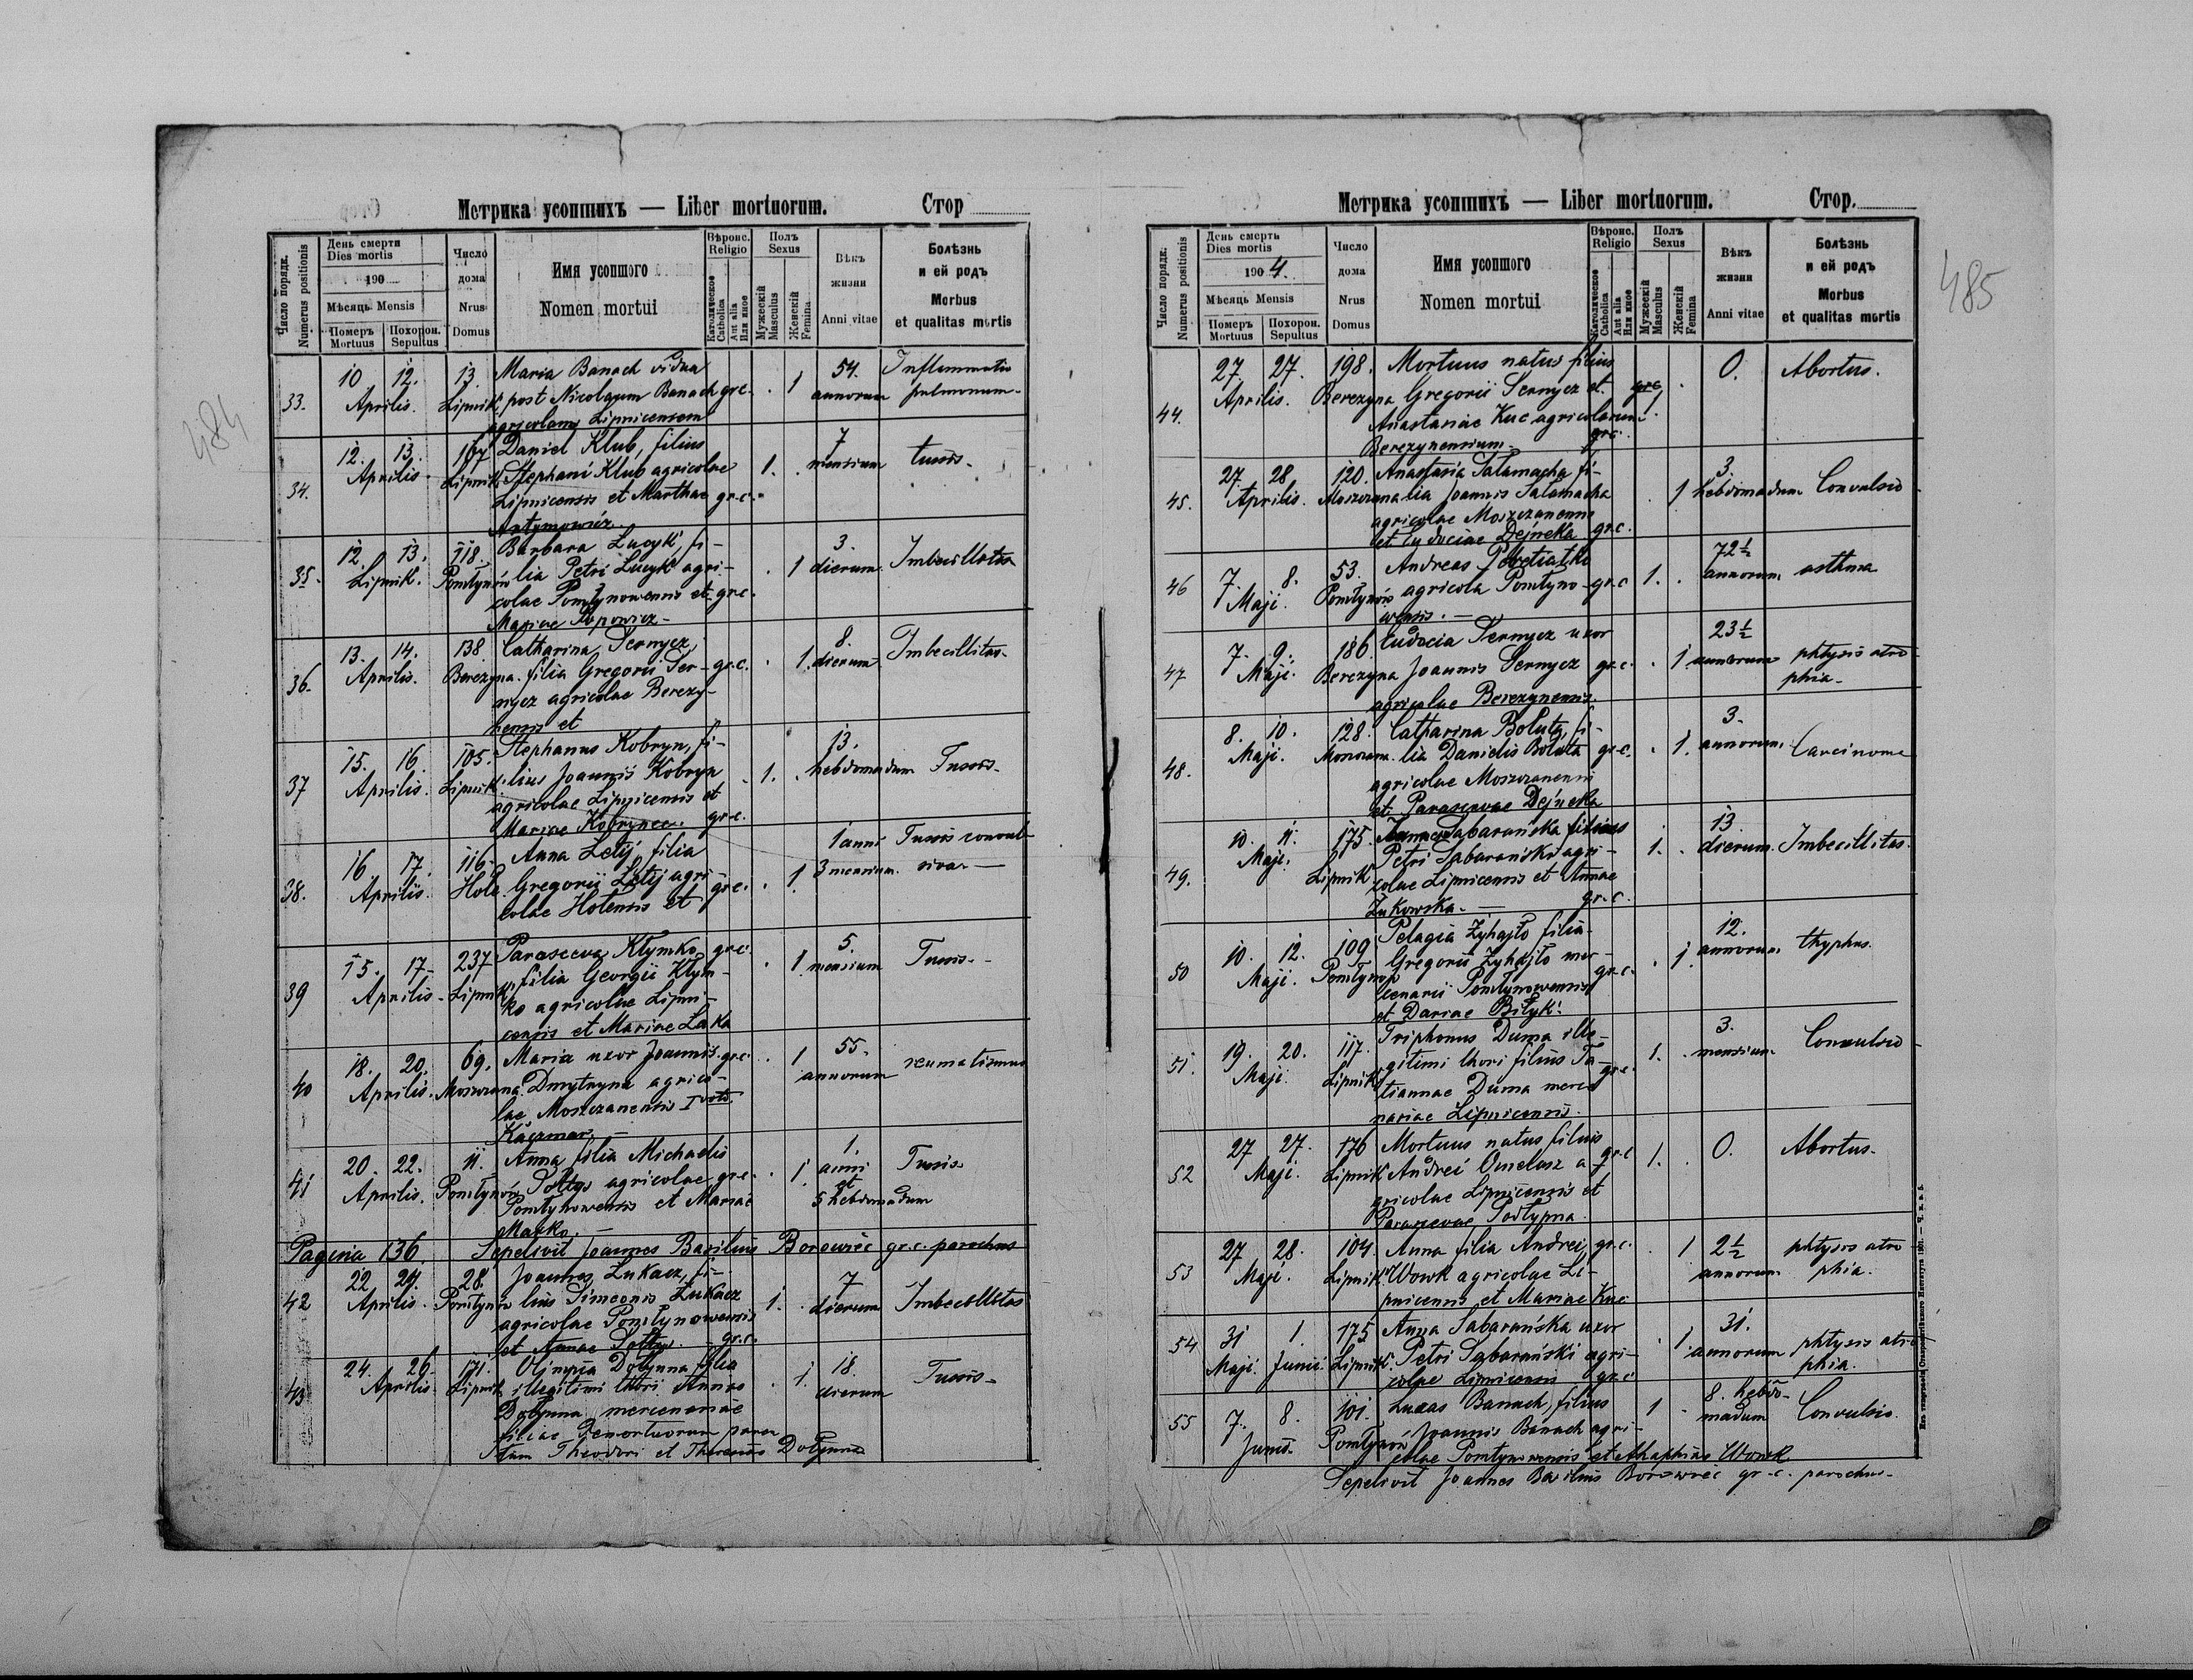 484
Метрика усопшихъ — Liber mortuorum. Стор
Число порядк. Numerus positionis
День смерти Dies mortis
190
Мѣсяць Mensis
Померъ Mortuus
Похорон. Sepultus
Число дома Nrus Domus
Имя усопшого Nomen mortui
Вѣроис. Religio
Католическое Catholica
Aut alia Или иное
Полъ Sexus
Мужескій Masculus
Женскій Femina
Вѣкъ жизни Anni vitae
Болѣзнь и ей родъ Morbus et qualitas mortis
33. 10 12. Aprilis. 13. Lipnik
Maria Banach vidua
post Nicolaum Banach gr.c. 1 54. annorum Inflammatio pulmonum.
agricolam Lipnicensem
34. 12. 13. Aprilis. 167 Lipnik
Daniel Klub, filius
Stephani Klub agricolae 1. 7 mensium tussis.
Lipnicensis et Marthae gr.c.
Antymowicz.
35. 12. 13. Lipnik. 118. Pomłynów
Barbara Łucyk, fi-
lia Petri Łucyk agri- 1 3. dierum Imbecillitas
colae Pomłynowensis et gr.c.
Mariae Popowicz
36. 13. 14. Aprilis. 138. Berezyna.
Catharina Sernycz,
filia Gregorii Ser- gr.c. 1. 8. dierum Imbecillitas.
nycz agricolae Berezy-
nensis et
37 15. 16. Aprilis. 105. Lipnik.
Stephanus Kobryn, fi-
lius Joannis Kobryn 1. 13. hebdomadum Tussis.
agricolae Lipnicensis et
Mariae Kobrynec. gr.c.
38. 16 17. Aprilis. 116. Hole
Anna Letij filia
Gregorii Letij agri- gr.c. 1. 1 anni 3 mensium. Tussis convulsiva
colae Holensis et
39 15. 17. Aprilis. 237 Lipnik
Parasceva Kłymko, gr.c.
filia Georgii Kłym- 1. 5. mensium Tussis.
ko agricolae Lipni-
censis et Mariae Łaka
40 18. 20. Aprilis. 69. Moszczana.
Maria uxor Joannis gr.c. 1 55. annorum reumatismus
Dmytryna agrico-
lae Moszczanensis I voto
Kaczmar
41 20. 22. Aprilis. 11. Pomłynów
Anna filia Michaelis
Sołtys agricolae gr.c. 1. 1. anni et 5 hebdomadum Tussis
Pomłynowensis et Mariae
Mazko.
Pagina 136. Sepelivit Joannes Basilius Borowiec gr.c. parochus
42 22 24. Aprilis. 28. Pomłynów
Joannes Łukacz, fi-
lius Simeonis Łukacz 1. 7 dierum Imbecillitas
agricolae Pomłynowensis
et Annae Sołtys. gr.c.
43 24. 26. Aprilis. 171. Lipnik
Olympia Dołynna filia
illegitimi thori Annae 1. 18. dierum Tussis.
Dołynna mercenariae
filiae demortuorum paren
tum Theodori et Dołynna
485
Метрика усопшихъ — Liber mortuorum. Стор.
Число порядк. Numerus positionis
День смерти Dies mortis
1904.
Мѣсяць Mensis
Померъ Mortuus
Похорон. Sepultus
Число дома Nrus Domus
Имя усопшого Nomen mortui
Вѣроис. Religio
Католическое Catholica
Aut alia Или иное
Полъ Sexus
Мужескій Masculus
Женскій Femina
Вѣкъ жизни Anni vitae
Болѣзнь и ей родъ Morbus et qualitas mortis
44. 27 27. Aprilis. 198. Berezyna
Mortuus natus filius
Gregorii Sernycz et gr.c 1. 0. Abortus.
Anastasiae Kuc agricolarum
Berezynensium gr.c.
45. 27 28 Aprilis. 120. Moszczana
Anastasia Sałamacha fi-
lia Joannis Sałamacha 1 3. hebdomadum Convulsio
agricolae Moszczanensis
et Eudociae Dejneka gr.c.
46 7. 8. Maji. 53. Pomłynów
Andreas
agricola Pomłyno- gr.c 1. 72½ annorum asthma
wensis.
47 7. 9. Maji. 186. Berezyna
Eudocia Sernycz uxor
Joannis Sernycz gr.c. 1 23½ annorum phtysis atro
agricolae Berezynensis. phia
48. 8. 10. Maji. 128.
Catharina Boluta, fi-
lia Danielis Boluta gr.c. 1. 3. annorum. Carcinome
agricolae Moszczanensis
et Parascevae Dejneka
49. 10. 11. Maji. 175. Lipnik
Sabarańska filius
Petri Sabarański agri- 1. 13. dierum. Imbecillitas.
colae Lipnicensis et Annae
Żukowska. gr.c.
50 10. 12. Maji. 109. Pomłynów
Pelagia Żyhajło filia
Gregorii Żyhajło mer- gr.c. 1. 12. annorum thyphus.
cenarii Pomłynowensis
et Dariae Biłyk.
51. 19. 20. Maji. 117. Lipnik
Triphonus Duma ille-
gitimi thori filius Ta- gr.c. 1. 3. mensium Convulsio
tiannae Duma merce
nariae Lipnicensis.
52 27 27. Maji. 176 Lipnik
Mortuus natus filius
Andrei Omelasz a- gr.c 1. 0. Abortus.
gricolae Lipnicensis et
Parascevae Sołtypna
53 27 28. Maji. 104. Lipnik.
Anna filia Andrei, gr.c. 1 2½ annorum phtysis atro
Wowk agricolae Li- phia.
pnicensis et Mariae Kuc
54 31 Maji. 1. Junii. 175 Lipnik.
Anna Sabarańska uxor
Petri Sabarański agri- 1. 31. annorum phtysis atro
colae Lipnicensis gr.c. phia.
55 7. 8. Junii. 101. Pomłynów
Lucas Banach, filius 1 8. hebdo-
Joannis Banach agri- madum Convulsio.
colae Pomłynowensis et Wowk
Sepelivit Joannes Basilius Borowiec gr.c. parochus.